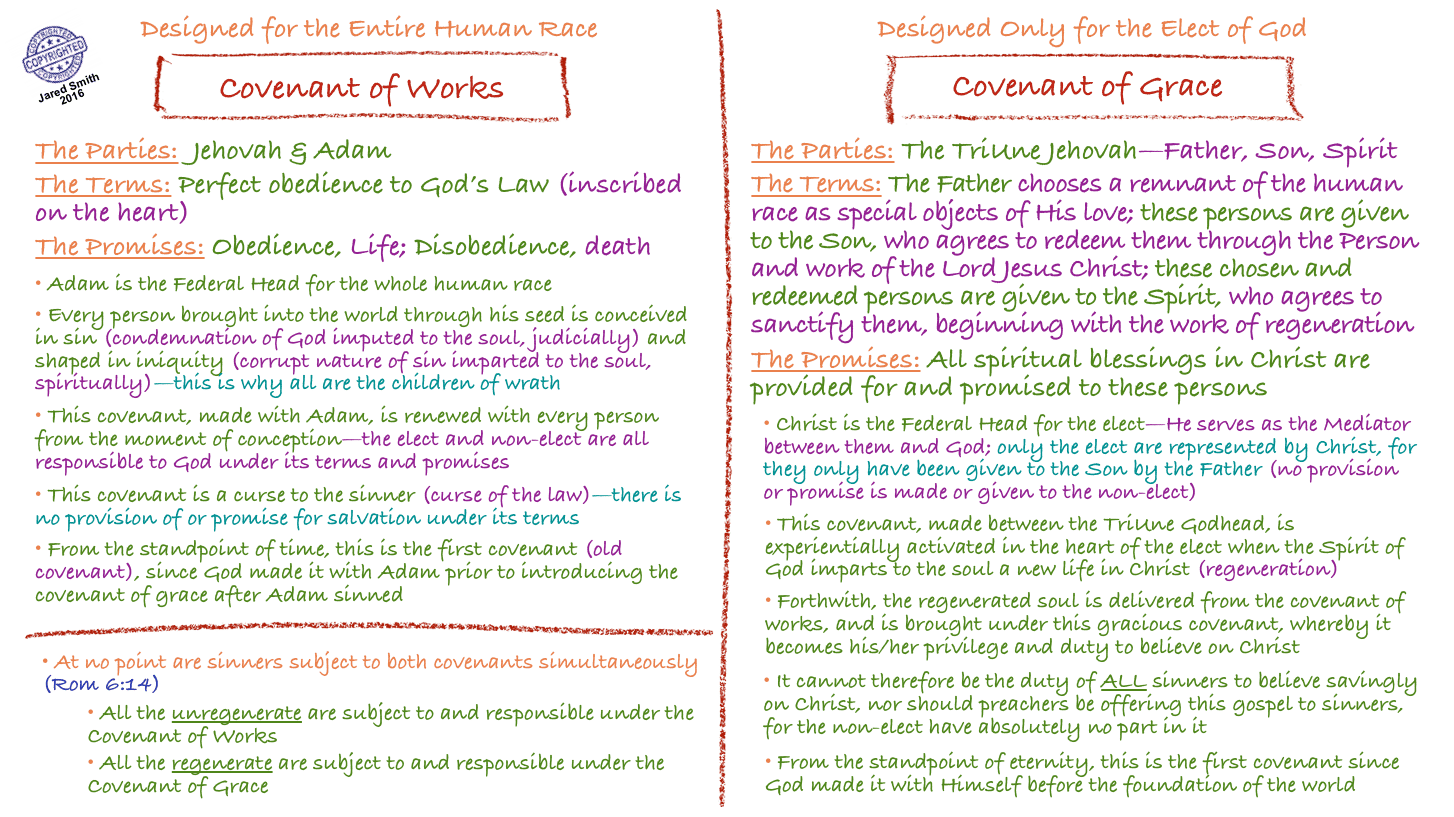 COPYRIGHTED
COPYRIGHTED
COPYRIGHTED
Jared Smith
2016
Designed for the Entire Human Race
Covenant of Works
The Parties: Jehovah & Adam
The Terms: Perfect obedience to God's Law (inscribed
on the heart)
The Promises: Obedience, Life; Disobedience, death
• Adam is the Federal Head for the whole human race
• Every person brought into the world through his seed is conceived
in sin (condemnation of God imputed to the soul, judicially) and
shaped in iniquity (corrupt nature of sin imparted to the soul,
spiritually)—this is why all are the children of wrath
• This covenant, made with Adam, is renewed with every person
from the moment of conception—the elect and non-elect are all
responsible to God under its terms and promises
• This covenant is a curse to the sinner (curse of the law)—there is
no provision of or promise for salvation under its terms
• From the standpoint of time, this is the first covenant (old
covenant), since God made it with Adam prior to introducing the
covenant of grace after Adam sinned
• At no point are sinners subject to both covenants simultaneously
(Rom 6:14)
• All the unregenerate are subject to and responsible under the
Covenant of Works
• All the regenerate are subject to and responsible under the
Covenant of Grace
Designed Only for the Elect of God
Covenant of Grace
The Parties: The TriUne Jehovah—Father, Son, Spirit
The Terms: The Father chooses a remnant of the human
race as special objects of His love; these persons are given
to the Son, who agrees to redeem them through the Person
and work of the Lord Jesus Christ; these chosen and
redeemed persons are given to the Spirit, who agrees to
sanctify them, beginning with the work of regeneration
The Promises: All spiritual blessings in Christ are
provided for and promised to these persons
• Christ is the Federal Head for the elect—He serves as the Mediator
between them and God; only the elect are represented by Christ, for
they only have been given to the Son by the Father (no provision
or promise is made or given to the non-elect)
• This covenant, made between the TriUne Godhead, is
experientially activated in the heart of the elect when the Spirit of
God imparts to the soul a new life in Christ (regeneration)
• Forthwith, the regenerated soul is delivered from the covenant of
works, and is brought under this gracious covenant, whereby it
becomes his/her privilege and duty to believe on Christ
• It cannot therefore be the duty of ALL sinners to believe savingly
on Christ, nor should preachers be offering this gospel to sinners,
for the non-elect have absolutely no part in it
• From the standpoint of eternity, this is the first covenant since
God made it with Himself before the foundation of the world